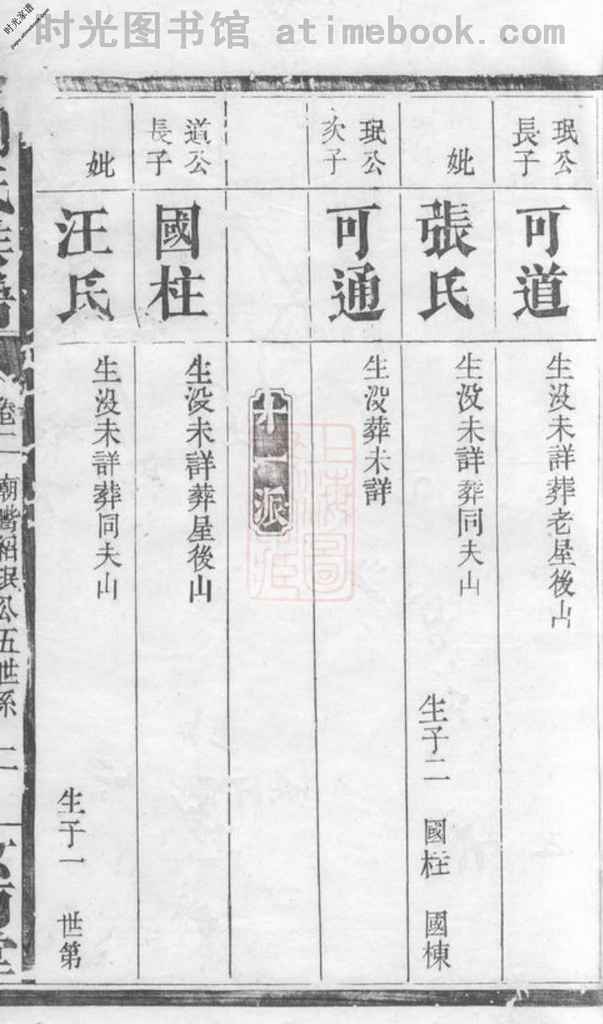 时光图书馆 atimebook.com
时光家谱
珉公
長子
可道
生没未詳葬老屋後山
妣
張氏
生没未詳葬同夫山
生子二 國柱 國棟
珉公
次子
可通
生没葬未詳
十一派
道公
長子
國柱
生没未詳葬屋後山
妣
汪氏
生没未詳葬同夫山
生子一 世第
卷二
珉公五世系
二